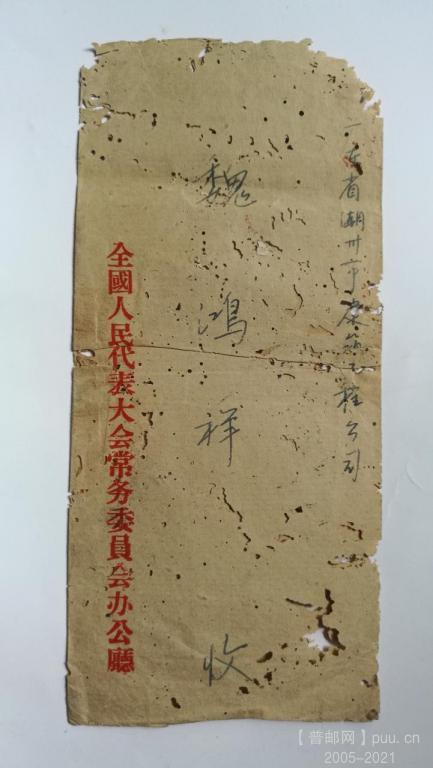 广东省潮州市建筑工程公司
魏鸿祥 收
全國人民代表大会常务委員会办公廳
【普邮网】puu.cn
2005-2021